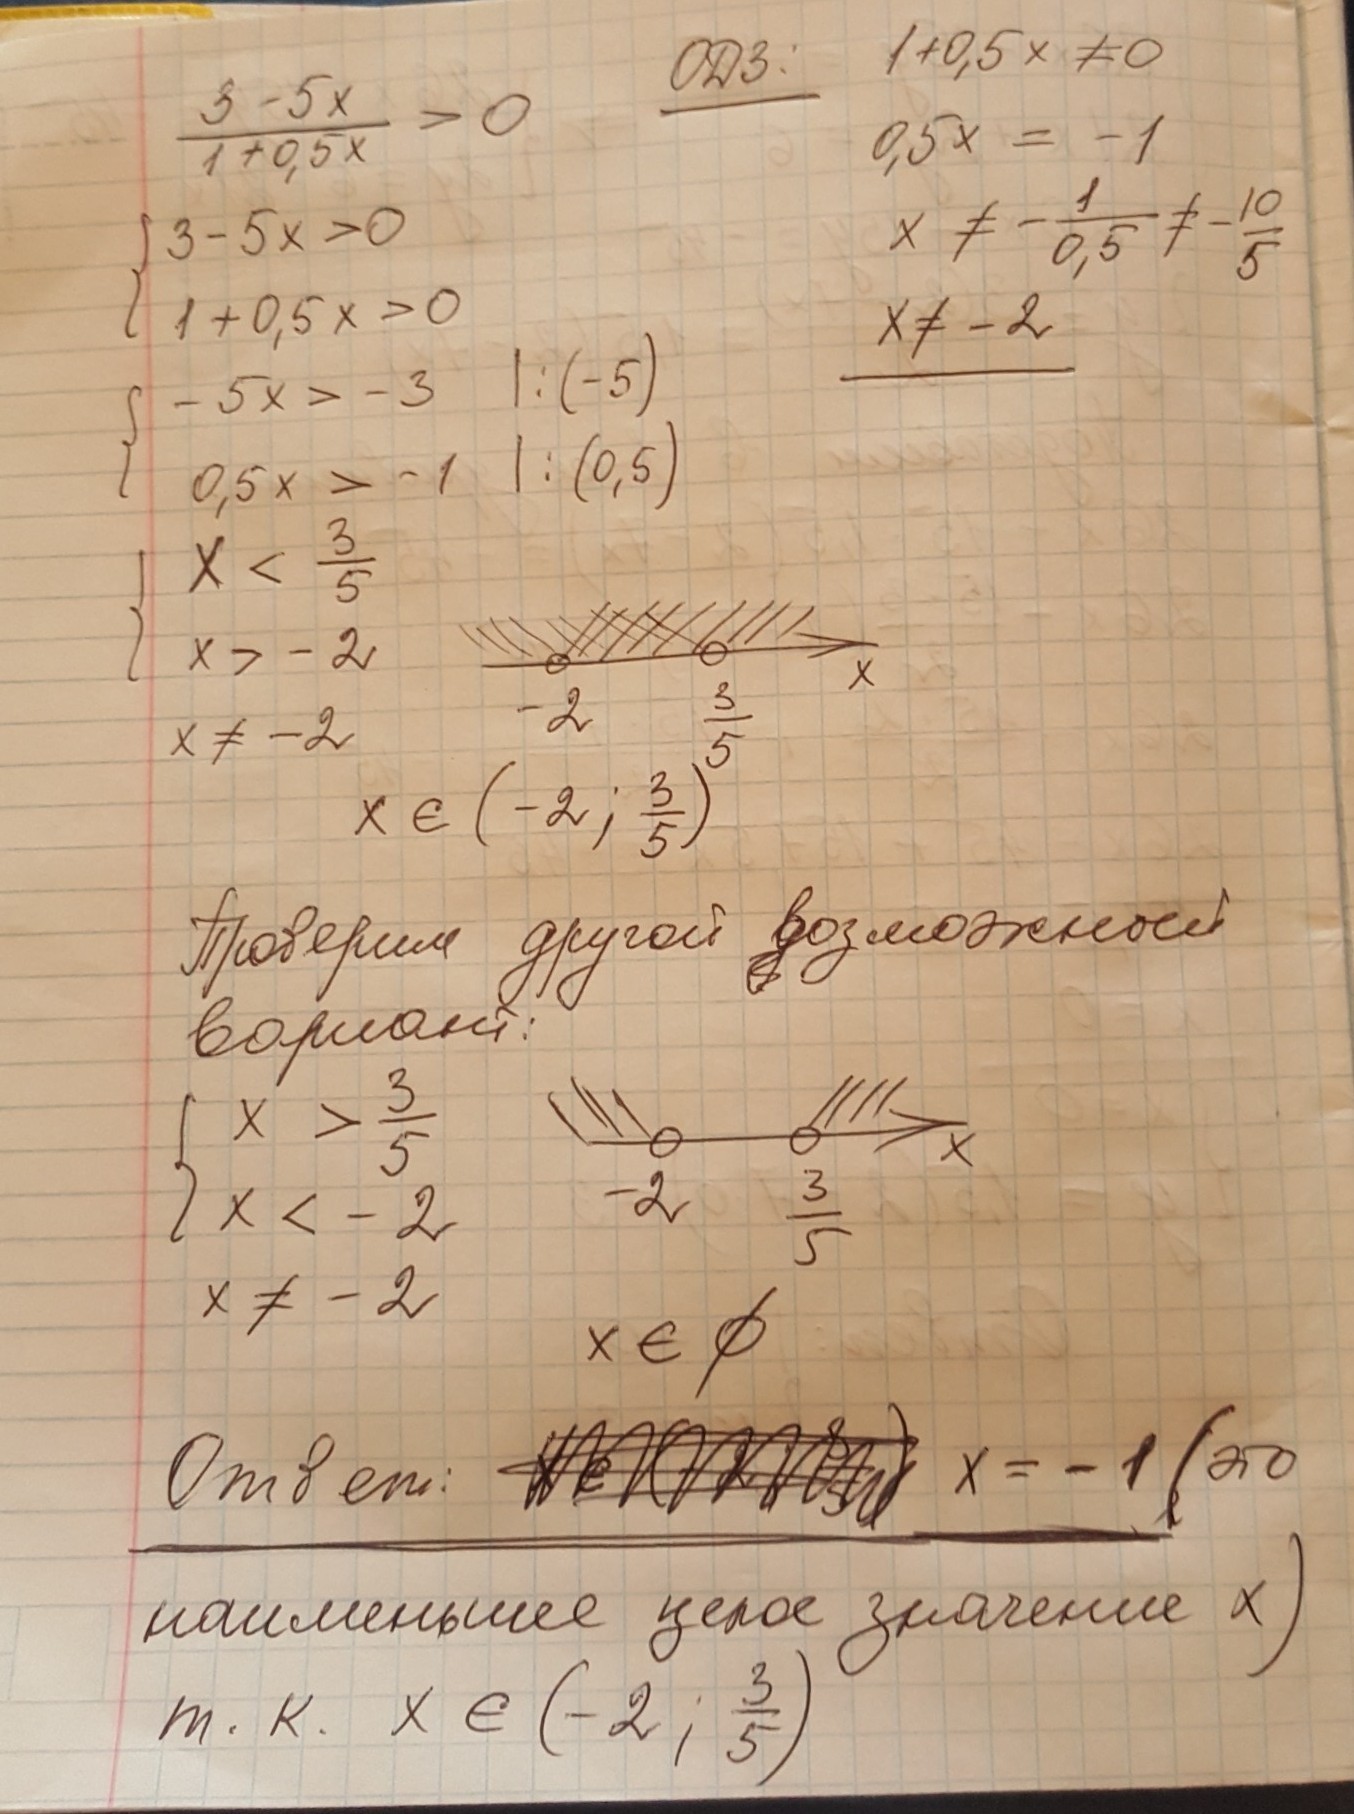 3 - 5x
1 + 0,5x
> 0
{ 3 - 5x > 0
1 + 0,5x > 0
{ - 5x > - 3 | : (-5)
0,5x > - 1 | : (0,5)
{ x < 3/5
x > - 2
x ≠ - 2
ОДЗ: 1 + 0,5x ≠ 0
0,5x = - 1
x ≠ - 1/0,5 ≠ - 10/5
x ≠ - 2
-2 3/5 x
x ∈ (-2; 3/5)
Проверим другой возможный
вариант:
{ x > 3/5
x < - 2
x ≠ - 2
-2 3/5 x
x ∈ ∅
Ответ: x = - 1 (это
наименьшее целое значение x)
т. к. x ∈ (-2; 3/5)